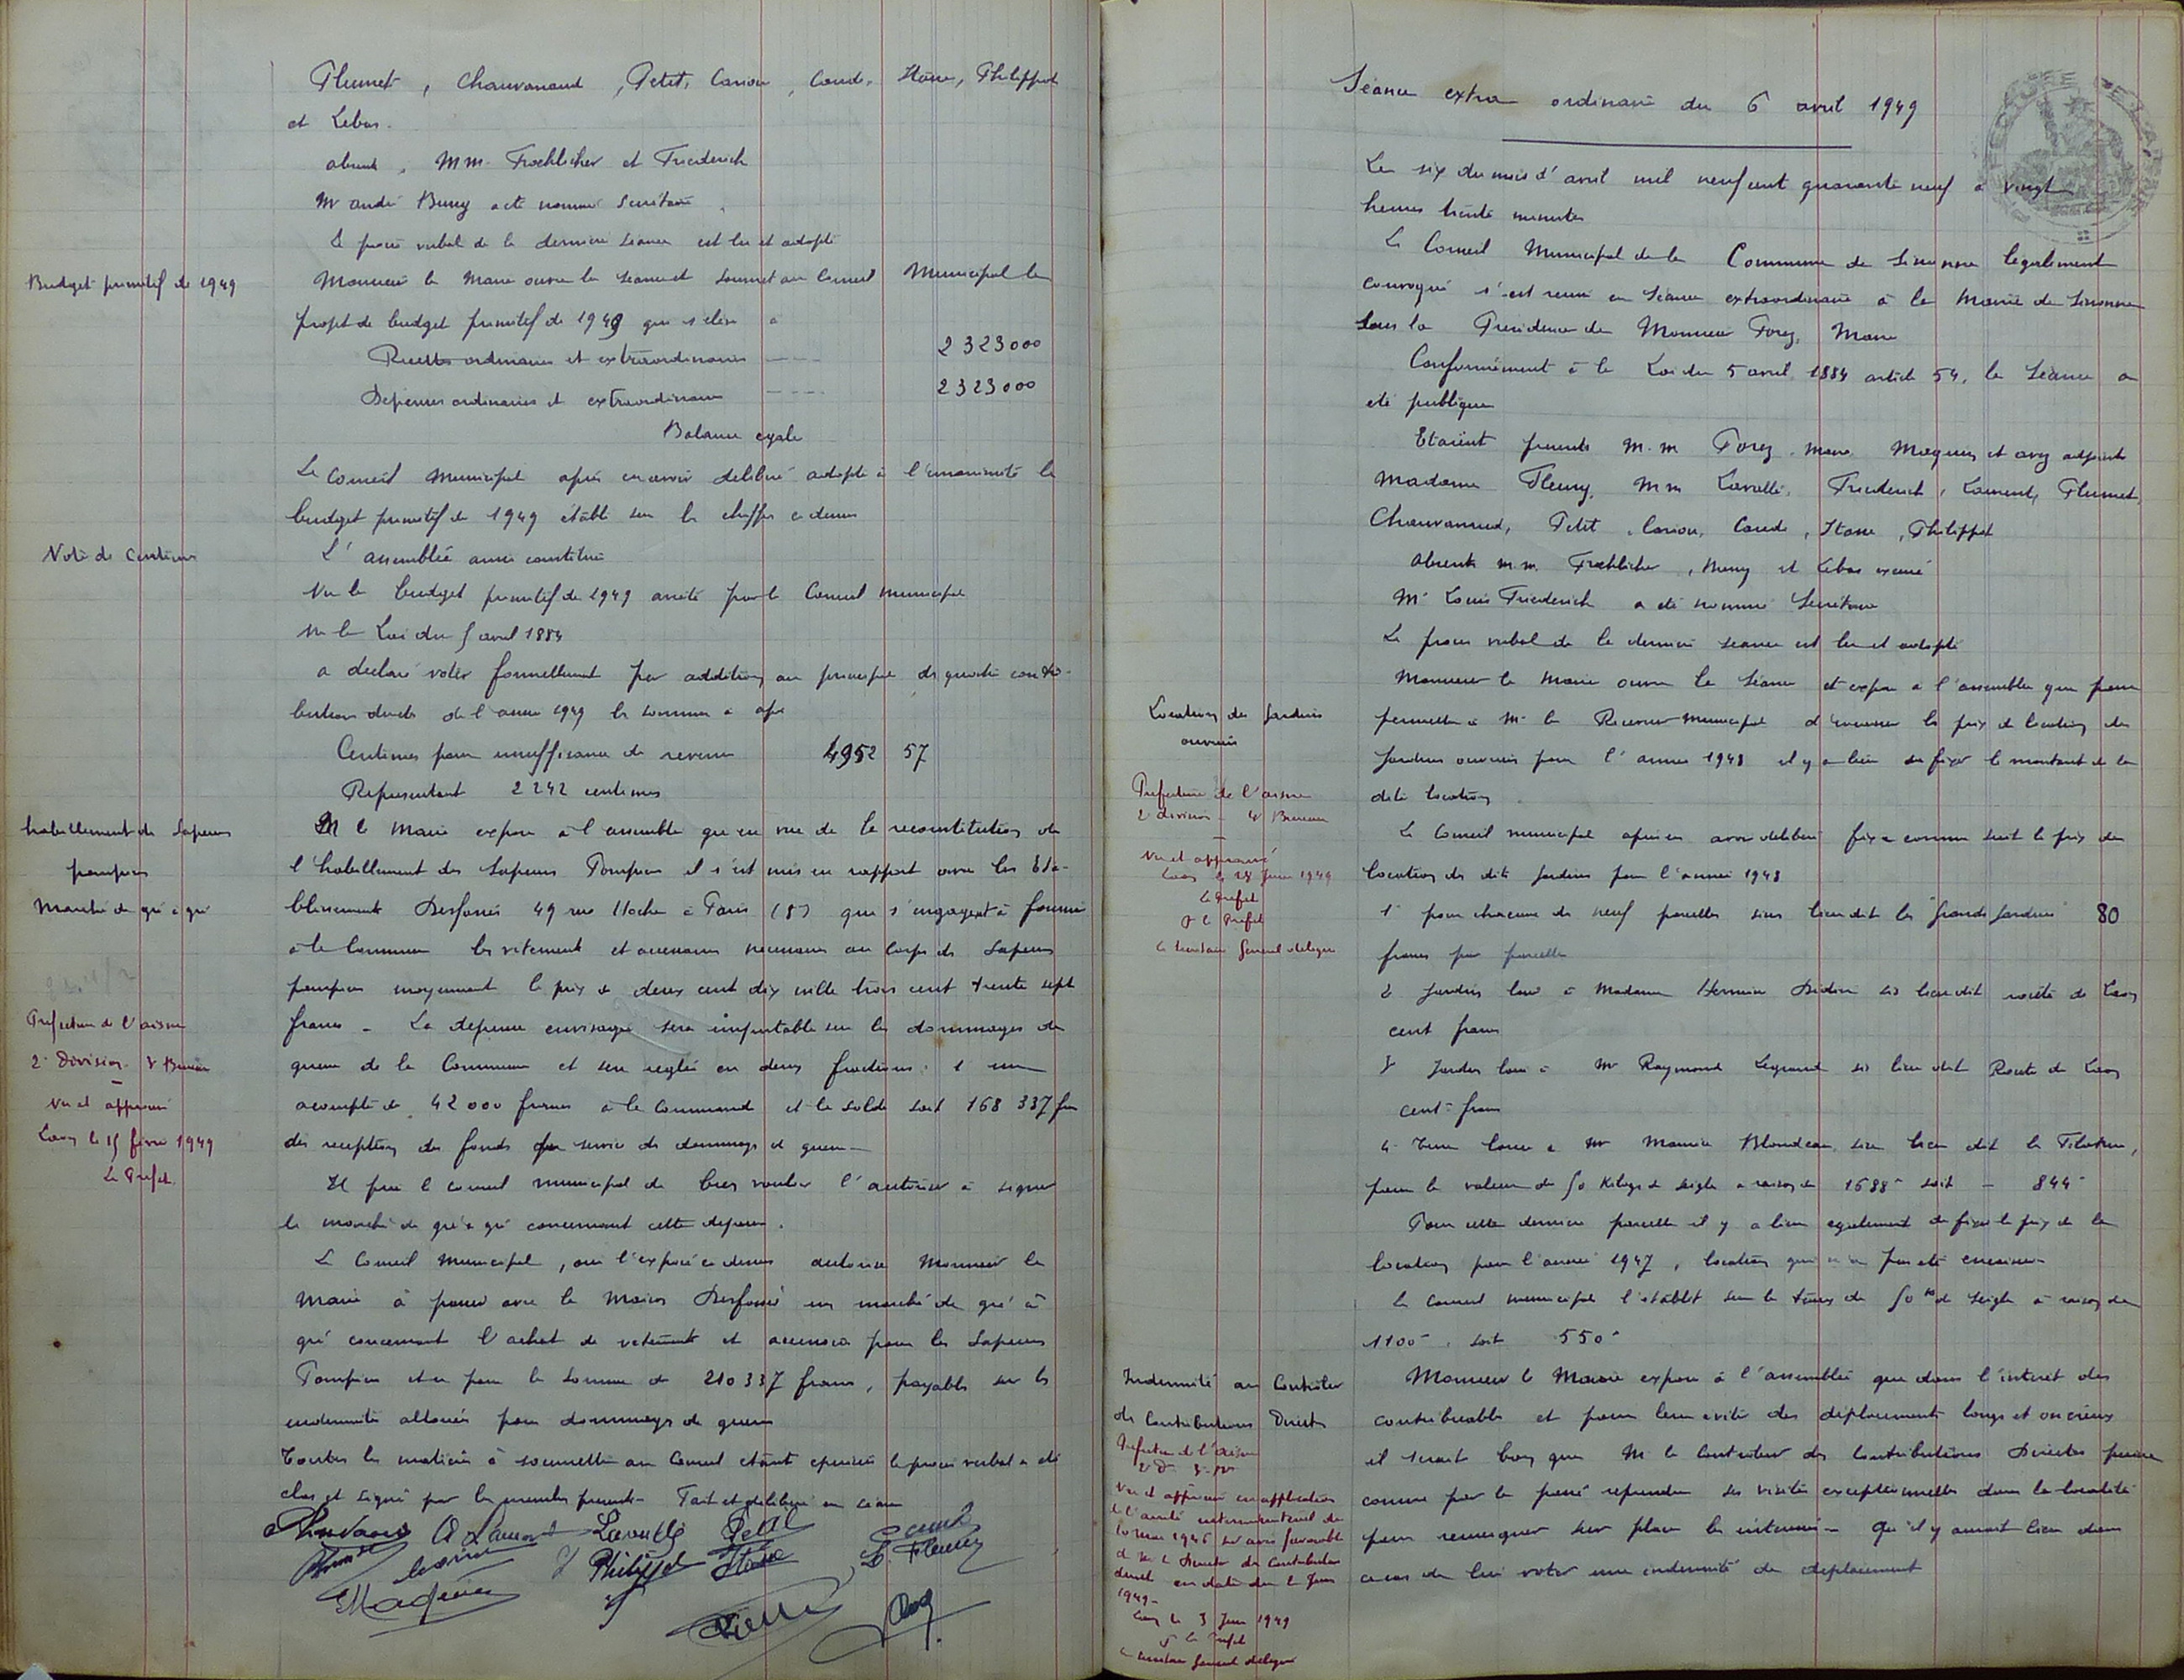 Plumet, Chauvanaud, Petit, Cariou, Caude, Stane, Philippot
et Lebas.
absents, MM. Froehlicher et Friederich
Mr andré Buny a été nommé Secrétaire
Le procès verbal de la dernière séance est lu et adopté
Budget primitif de 1949
Monsieur le Maire ouvre la séance et soumet au Conseil Municipal le
projet de budget primitif de 1949 qui s'élève à
Recettes ordinaires et extraordinaires ---- 2 323 000
Dépenses ordinaires et extraordinaires ---- 2 323 000
Balance égale
Le Conseil Municipal après en avoir délibéré adopte à l'unanimité le
budget primitif de 1949 établi sur les chiffres ci dessus
Vote de Centimes
L'assemblée ainsi constituée
Vu le budget primitif de 1949 arrêté par le Conseil municipal
Vu la Loi du 5 avril 1884
a déclaré voter formellement par addition au principal des quatre contri-
butions directes de l'année 1949 les sommes ci après
Centimes pour insuffisance de revenus 4952 57
Représentant 2242 centimes
habillement des Sapeurs
pompiers
Marché de gré à gré
M le Maire expose à l'assemblée qu'en vue de la reconstitution de
l'habillement des Sapeurs Pompiers il s'est mis en rapport avec les Eta-
blissements Desfossés 49 rue Hoche à Paris (8) qui s'engagent à fournir
à la Commune les vêtements et accessoires nécessaires au Corps des Sapeurs
pompiers moyennant le prix de deux cent dix mille trois cent trente sept
francs - La dépense envisagée sera imputable sur les dommages de
guerre de la Commune et sera réglée en deux fractions: 1 un
acompte de 42 000 francs à la Commande et le solde soit 168 337 frs
dès réception des fonds du service des dommages de guerre
Préfecture de l'aisne
2e Division - 3 Bureau
Vu et approuvé
Laon le 15 février 1949
Le Préfet
Il prie le conseil municipal de bien vouloir l'autoriser à signer
le marché de gré à gré concernant cette dépense.
Le Conseil Municipal, ouï l'exposé ci dessus autorise Monsieur le
Maire à passer avec la Maison Desfossés un marché de gré à
gré concernant l'achat de vêtements et accessoires pour les Sapeurs
Pompiers et ce pour la somme de 210 337 francs, payables sur les
indemnités allouées pour dommages de guerre
Toutes les matières à soumettre au Conseil étant épuisées le procès verbal a été
clos et signé par les membres présents - Fait et délibéré en séance
A Laurent Lavallé Petit Caude
Cariou Philippot Stane L. Fleury
Séance extra ordinaire du 6 avril 1949
Le six du mois d'avril mil neuf cent quarante neuf à vingt
heures trente minutes
Le Conseil Municipal de la Commune de Sissonne légalement
convoqué s'est réuni en Séance extraordinaire à la Mairie de Sissonne
sous la Présidence de Monsieur Forez, Maire
Conformément à la Loi du 5 avril 1884 article 54, la Séance a
été publique
Etaient présents M.M Forez, maire, et adjoints
Madame Fleury, MM Lavallé, Friederich, Laurent, Plumet,
Chauvanaud, Petit, Cariou, Caude, Stane, Philippot
absents m.m. Froehlicher, et Lebas excusé
Mr Louis Friederich a été nommé Secrétaire
Le procès verbal de la dernière séance est lu et adopté
Location des Jardins
ouvriers
Monsieur le Maire ouvre la Séance et expose à l'assemblée que pour
permettre à Mr le Receveur municipal d'encaisser le prix de location des
Jardins ouvriers pour l'année 1948 il y a lieu de fixer le montant de la
dite location
Préfecture de l'aisne
2e division - 4e Bureau
Vu et approuvé
Laon le 28 Juin 1949
Le Préfet
P le Préfet
Le Secrétaire Général délégué
Le Conseil municipal après en avoir délibéré fixe comme suit le prix de
location des dits Jardins pour l'année 1948
1° pour chacune des neuf parcelles sises lieu dit les "Grands Jardins" 80
francs par parcelle
2 Jardin loué à Madame Hermine Didier sis lieu dit route de Laon
cent francs
3 Jardin loué à Mr Raymond Legrand sis lieu dit Route de Laon
cent francs
4 Terre louée à Mr Maurice Blondeau sise lieu dit la Filature,
pour la valeur de 50 Kilogs de seigle à raison de 1688- soit - 844-
Pour cette dernière parcelle il y a lieu également de fixer le prix de la
location pour l'année 1947, location qui n'a pas été encaissée
Le Conseil municipal l'établit sur le taux de 50 ks de seigle à raison de
1100-, soit 550-
Indemnité au Contrôleur
des Contributions Directes
Monsieur le Maire expose à l'assemblée que dans l'intérêt des
contribuables et pour leur éviter des déplacements longs et onéreux
il serait bon que M le Contrôleur des Contributions Directes puisse
comme par le passé reprendre ses visites exceptionnelles dans la localité
pour renseigner sur place les intéressés - Qu'il y aurait lieu dans
ce cas de lui voter une indemnité de déplacement
Préfecture de l'Aisne
Vu et approuvé en application
de l'arrêté interministériel du
10 mai 1946 sur avis favorable
de M le Directeur des Contributions
directes en date du 2 Juin
1949 -
Laon le 3 Juin 1949
P le Préfet
Le Secrétaire Général délégué